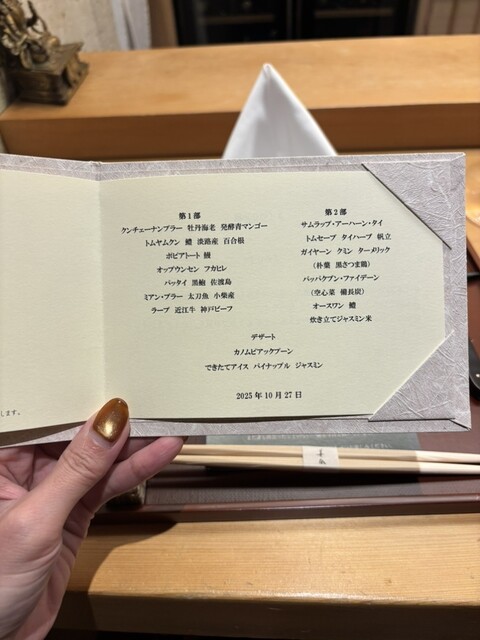 第1部
クンチェーナンプラー 牡丹海老 発酵青マンゴー
トムヤムクン 鱧 淡路産 百合根
ポピアトート 鰻
オップウンセン フカヒレ
パッタイ 黒鮑 佐渡島
ミアン・プラー 太刀魚 小柴産
ラープ 近江牛 神戸ビーフ
第2部
サムラップ・アーハーン・タイ
トムセープ タイハーブ 帆立
ガイヤーン クミン ターメリック
(朴葉 黒さつま鶏)
パッパクブン・ファイデーン
(空心菜 備長炭)
オースワン 鱧
炊き立てジャスミン米
デザート
カノムピアックプーン
できたてアイス パイナップル ジャスミン
2025年10月27日
します。